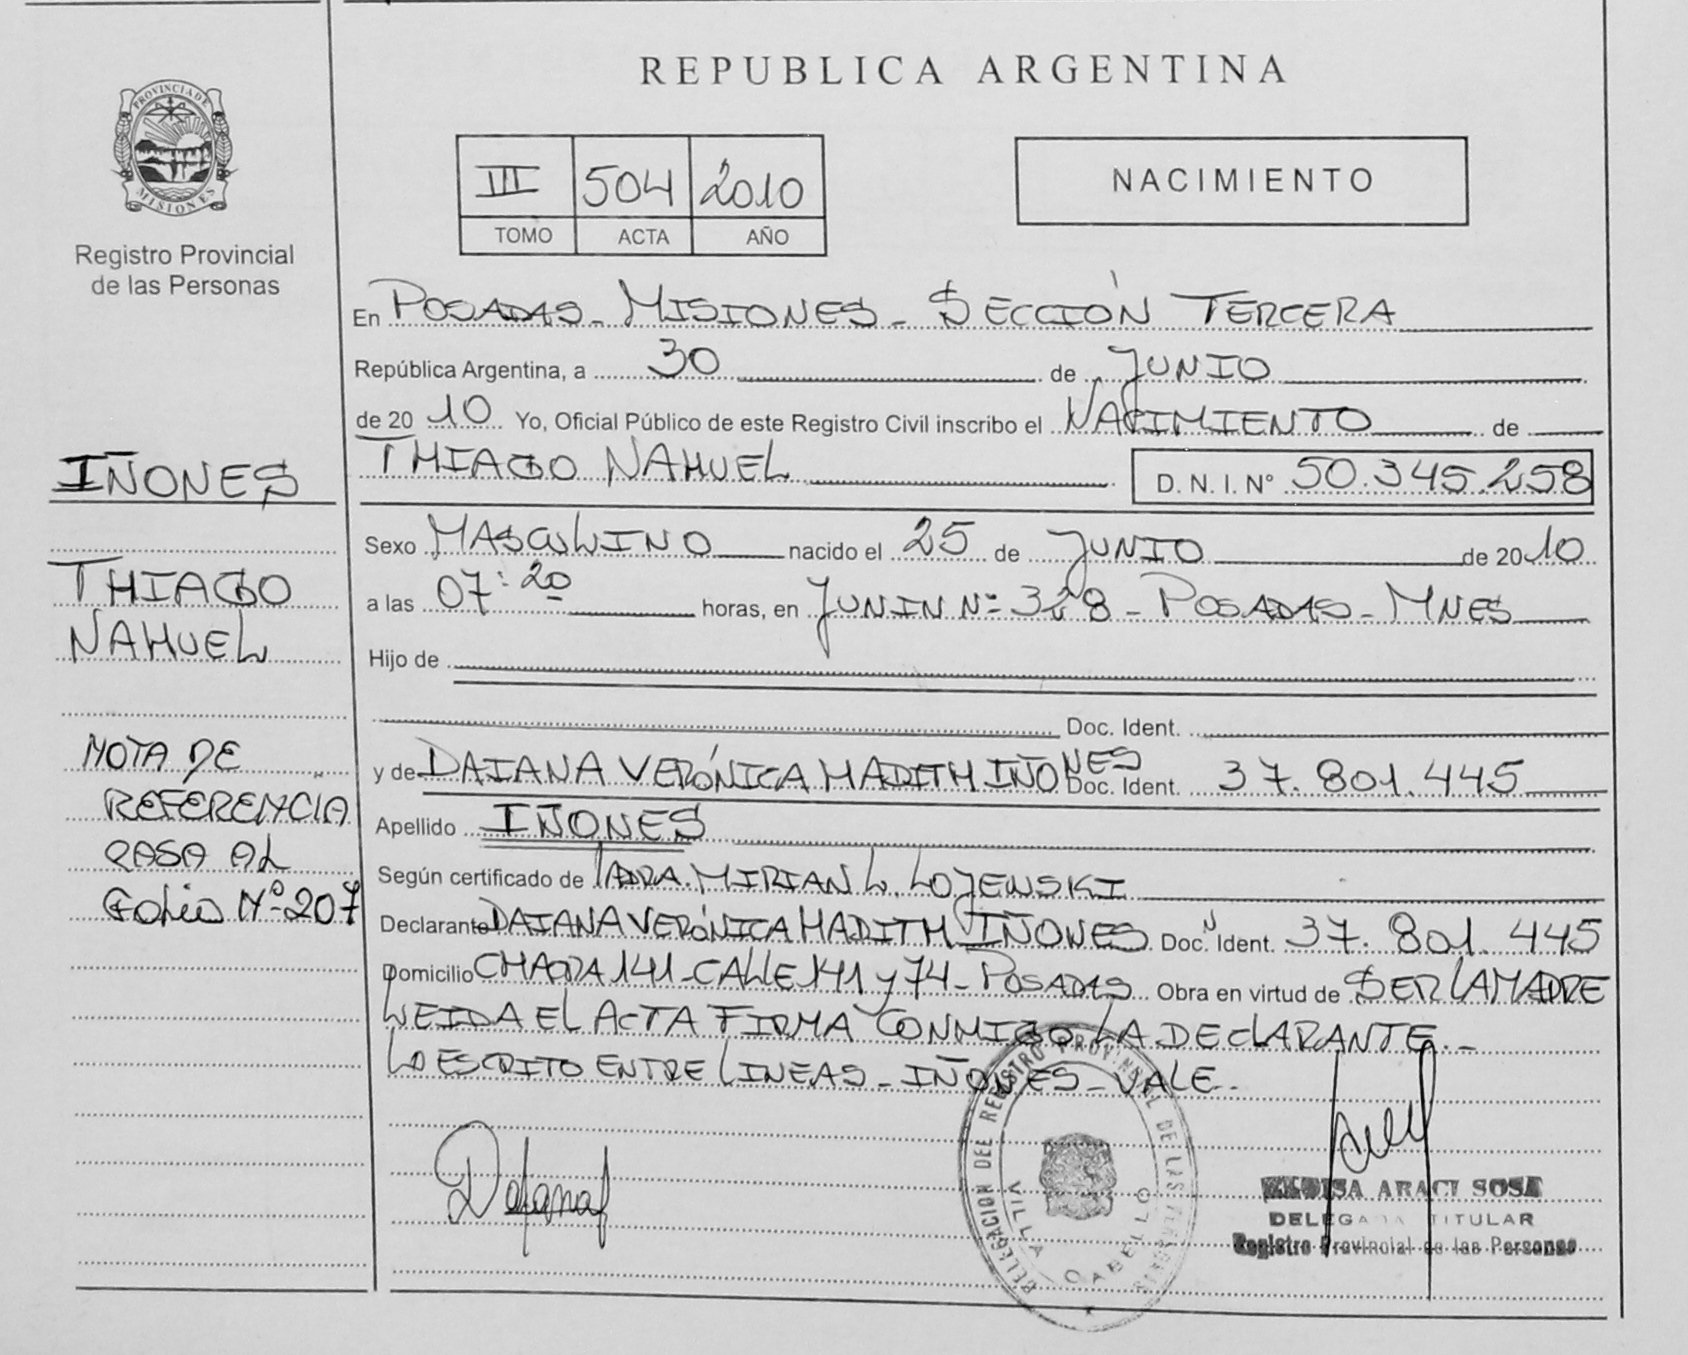 PROVINCIA DE
MISIONES
Registro Provincial
de las Personas
IÑONES
THIAGO
NAHUEL
NOTA DE
REFERENCIA
PASA AL
Folio Nº 207
REPUBLICA ARGENTINA
III 504 2010
TOMO ACTA AÑO
NACIMIENTO
En POSADAS - MISIONES - SECCIÓN TERCERA
República Argentina, a 30 de JUNIO
de 20 10 Yo, Oficial Público de este Registro Civil inscribo el NACIMIENTO de
THIAGO NAHUEL D. N. I. Nº 50.345.258
Sexo MASCULINO nacido el 25 de JUNIO de 20 10
a las 07:20 horas, en JUNIN Nº 328 - POSADAS - MNES
Hijo de
Doc. Ident.
y de DAIANA VERÓNICA MADITH IÑONES Doc. Ident. 37.801.445
Apellido IÑONES
Según certificado de LA DRA. MIRIAN L. LOJEWSKI
Declarante DAIANA VERÓNICA MADITH IÑONES Doc. Ident. 37.801.445
Domicilio CHACRA 141 - CALLE 141 y 74 - POSADAS Obra en virtud de SER LA MADRE
LEIDA EL ACTA FIRMA CONMIGO LA DECLARANTE.-
LO ESCRITO ENTRE LINEAS - IÑONES - VALE.
DELEGACION DEL REGISTRO PROVINCIAL DE LAS PERSONAS
VILLA CABELLO
ARACI SOSA
DELEGADA TITULAR
Registro Provincial de las Personas